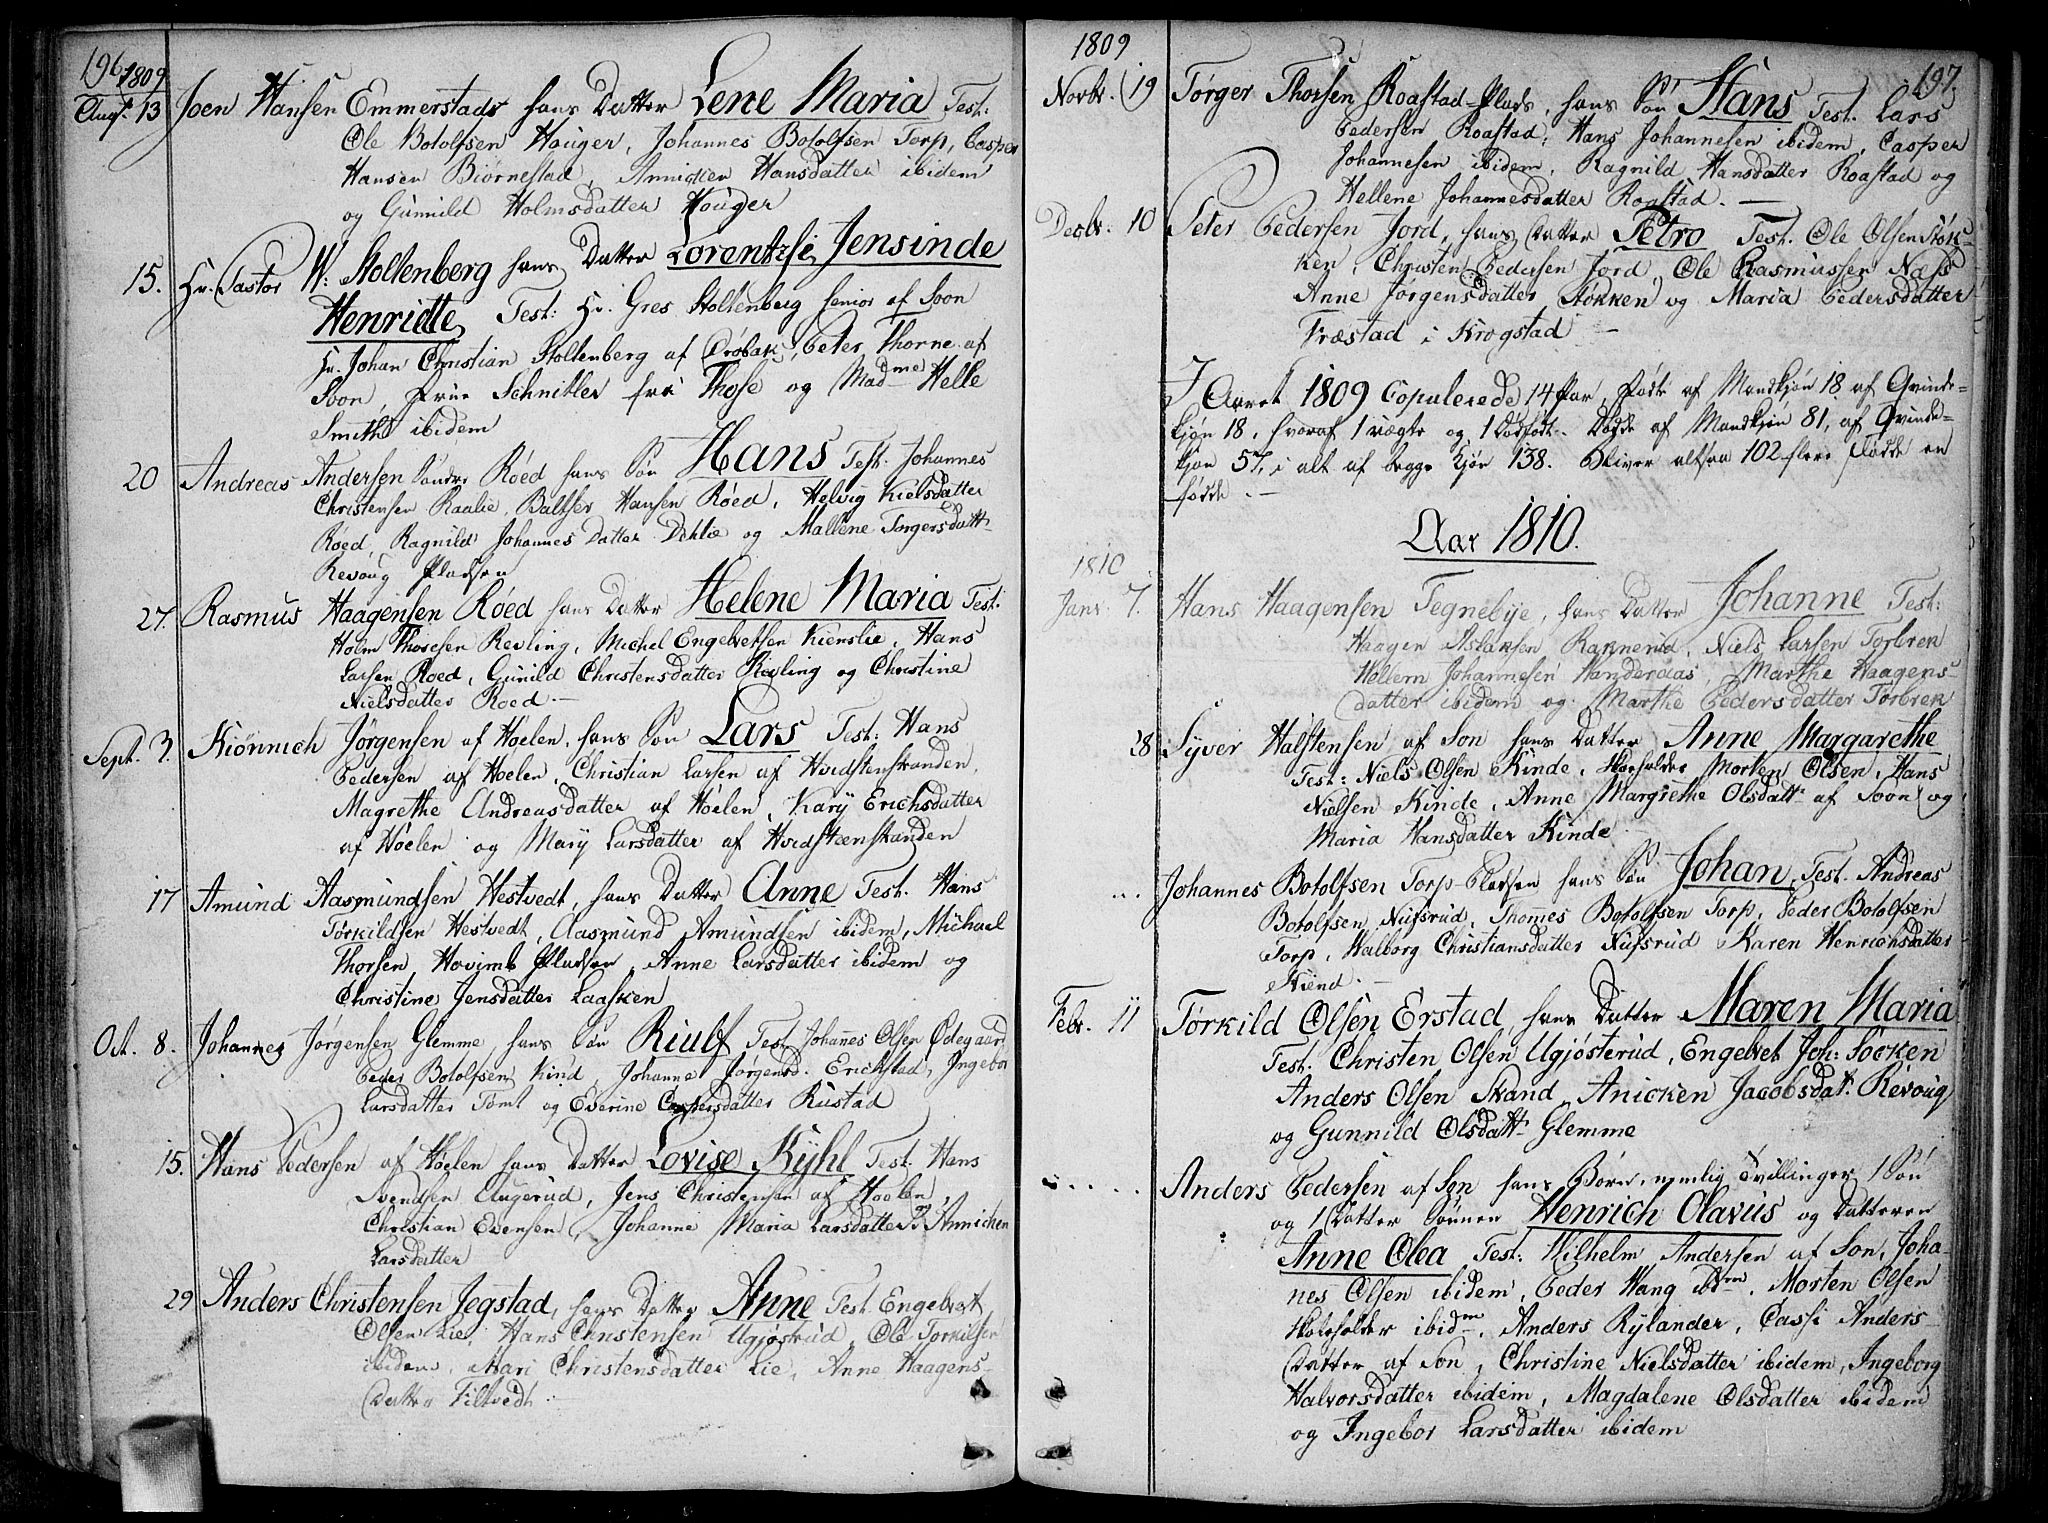 196.
1809
Aug. 13 Joen Hansen Emmerstads hans Datter Lene Maria Test:
Ole Botolfsen Houger, Johannes Botolfsen Torp, Casper
Hansen Biørnestad, Annicken Hansdatter ibidem
og Gunnild Holmsdatter Houger
15. Hr. Pastor W: Stoltenberg hans Datter Lorentze Jensinde
Henriette, Test: Hr. Gres Stoltenberg senior af Soon
Hr. Johan Christian Stoltenberg af Drøbak, Peter Thorne af
Soon, Frue Schnitler fra Those og Madme Helle
Smith ibidem
20 Andreas Andersen Søndre Röed hans Sön Hans Test. Johannes
Christensen Raalie, Baltser Hansen Röed, Helvig Kielsdatter
Röed, Ragnild Johannes Datter Dehlie og Mallene Torgersdatt
Revoug Pladsen
27. Rasmus Haagensen Röed hans Datter Helene Maria Test.
Holm Thoresen Revling, Michel Engelvetsen Kienslie, Hans
Larsen Roed, Gunild Christensdatter Revling og Christine
Nielsdatter Roed.
Sept. 3. Kiönnich Jörgensen af Höelen, hans Sön Lars Test: Hans
Pedersen af Höelen, Christian Larsen af Hvidsteenstranden,
Magrethe Andreasdatter af Höelen, Kary Erichsdatter
af Höelen og Mary Larsdatter af Hvidsteenstranden
17 Amund Aasmundsen Hestvedt, hans Datter Anne Test. Hans
Törkildsen Hestvedt, Aasmund Amundsen ibidem, Michael
Thorsen, Hovimb Pladsen, Anne Larsdatter ibidem og
Christine Jensdatter Laasken
Oct. 8. Johannes Jörgensen Glemme, hans Sön Riulf Test. Johannes Olsen Ödegaard
Peder Botolfsen Kind, Johanne Jørgensd. Erichstad, Ingebor
Larsdatter Tomt og Everine Caspersdatter Rustad
15. Hans Pedersen af Höelen hans Datter Lovise Kyhl Test. Hans
Svendsen Augerud, Jens Christensen af Hoelen,
Christian Evensen, Johanne Maria Larsdatter og Annichen
Larsdatter
29 Anders Christensen Jegstad, hans Datter Anne Test. Engelvet
Olsen Lie, Hans Christensen Ugjöstrud, Ole Torkilsen
ibidem, Mari Christensdatter Lie, Anne Haagens-
Datter Filtvedt.
197.
1809
Novbr. 19 Törger Thorsen Roastad-Plads, hans Sön Hans Test. Lars
Pedersen Roastad, Hans Johannesen ibidem, Casper
Johannesen ibidem, Ragnild Hansdatter Roastad og
Hellene Johannesdatter Roastad.
Decbr. 10 Peter Pedersen Jord, hans Datter Petro Test. Ole Olsen Støk-
ken, Christen Pedersen Jord, Ole Rasmussen Næss
Anne Jorgensdatter Stökken og Maria Pedersdatter
Træstad i Krogstad
I Aaret 1809 Copulerede 14 Par, Fødte af Mandkjøn 18 af Qvinde-
kjön 18, hvoraf 1 uægte og 1 Dødfødt. Döde af Mandkjøn 81, af Qvinde-
kjøn 57, i alt af begge Kjön 138. Bliver altsaa 102 flere Døde en
födde.
Aar 1810.
1810
Janr. 7. Hans Haagensen Tegnebye, hans Datter Johanne Test:
Haagen Aslaksen Rannerud, Niels Larsen Torbren
Hellem Johannesen Wanderaas, Marthe Haagens-
datter ibidem og Marthe Pedersdatter Torbren
28 Syver Halstensen af Son hans Datter Anne Margarethe
Test: Niels Olsen Kinde, Skoeholder Morten Olsen, Hans
Nielsen Kinde, Anne Margrethe Olsdattr af Soon og
Maria Hansdatter Kinde
... Johannes Botolfsen Torp-Pladsen hans Sön Johan, Test. Andreas
Botolfsen Nufsrud, Thomes Botolfsen Torp, Peder Botolfsen
Torp, Walborg Christiansdatter Nufsrud Karen Henrichsdatter
Kiend.
Febr. 11 Törkild Olsen Erstad hans Datter Maren Maria
Test. Christen Olsen Ugjøsterud, Engelvet Joh: Socken
Anders Olsen Strand, Anicken Jacobsdat: Revoug
og Gunnild Olsdatt Glemme
..... Anders Pedersen af Son hans Börn, nemlig Tvillinger 1 Sön
og 1 Datter Sønnen Henrich Olavus og Datteren
Anne Olea Test: Wilhelm Andersen af Son, Joha-
nes Olsen ibidem, Peder Wang ibdm, Morten Olsen
Skoleholder ibidm, Anders Rylander, Cassi Anders-
Datter af Son, Christine Nielsdatter ibidem, Ingeborg
Halvorsdatter ibidem, Magdalene Olsdatter ibidem
og Ingebor Larsdatter ibidem